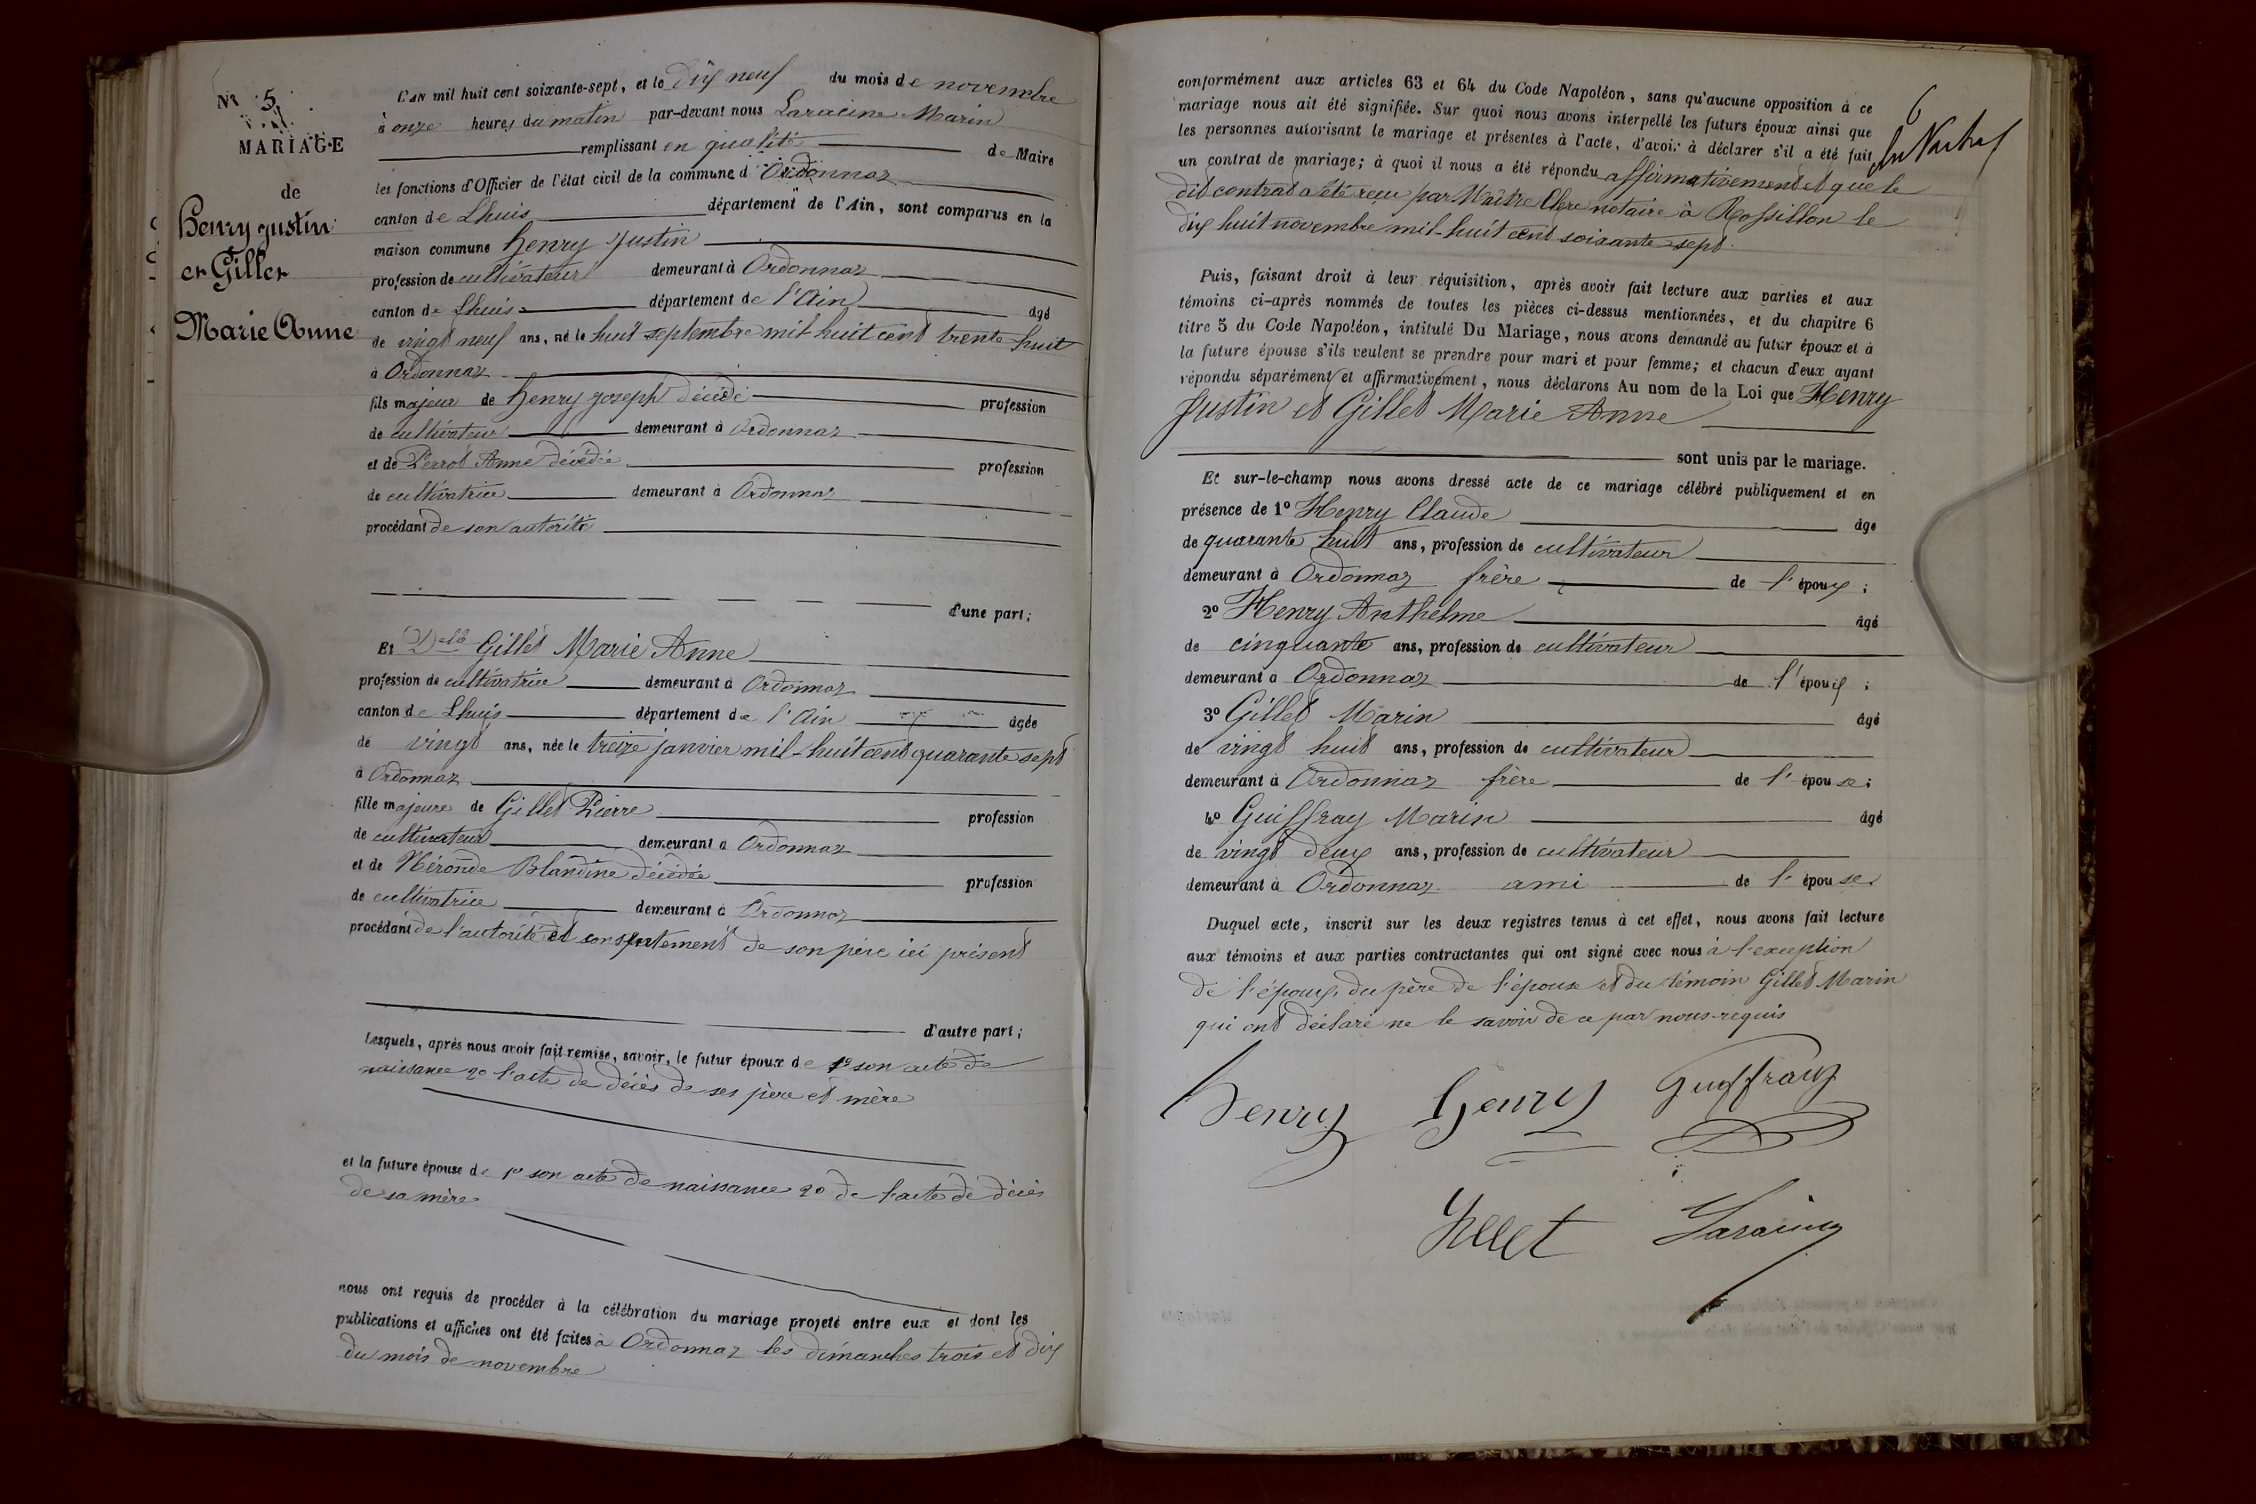 N° 5
MARIAGE
de
Henry Justin
et Gillet
Marie Anne
L'AN mil huit cent soixante-sept, et le dix neuf du mois de novembre
à onze heures du matin par-devant nous Laracine Marin
remplissant en qualité de Maire
les fonctions d'Officier de l'état civil de la commune d'Ordonnaz
canton de Lhuis département de l'Ain, sont comparus en la
maison commune henry Justin
profession de cultivateur demeurant à Ordonnaz
canton de Lhuis département de l'Ain âgé
de vingt neuf ans, né le huit septembre mil huit cent trente huit
à Ordonnaz
fils majeur de henry joseph décédé profession
de cultivateur demeurant à Ordonnaz
et de Perrot Anne décédée profession
de cultivatrice demeurant à Ordonnaz
procédant de son autorité
d'une part;
Et Dlle Gillet Marie Anne
profession de cultivatrice demeurant à Ordonnaz
canton de Lhuis département de l'Ain âgée
de vingt ans, née le treize janvier mil-huit cent quarante sept
à Ordonnaz
fille majeure de Gillet Pierre profession
de cultivateur demeurant à Ordonnaz
et de Néronde Blandine décédée profession
de cultivatrice demeurant à Ordonnaz
procédant de l'autorité et consentement de son père ici présent
d'autre part;
Lesquels, après nous avoir fait remise, savoir, le futur époux de 1° son acte de
naissance 2° l'acte de décès de ses père et mère
et la future épouse de 1° son acte de naissance 2° de l'acte de décès
de sa mère
nous ont requis de procéder à la célébration du mariage projeté entre eux et dont les
publications et affiches ont été faites à Ordonnaz les dimanches trois et dix
du mois de novembre
6
conformément aux articles 63 et 64 du Code Napoléon, sans qu'aucune opposition à ce
mariage nous ait été signifiée. Sur quoi nous avons interpellé les futurs époux ainsi que
les personnes autorisant le mariage et présentes à l'acte, d'avoir à déclarer s'il a été fait
un contrat de mariage; à quoi il nous a été répondu affirmativement et que le
dit contrat a été reçu par Maître Clerc notaire à Rossillon le
dix huit novembre mil-huit cent soixante sept.
Puis, faisant droit à leur réquisition, après avoir fait lecture aux parties et aux
témoins ci-après nommés de toutes les pièces ci-dessus mentionnées, et du chapitre 6
titre 5 du Code Napoléon, intitulé Du Mariage, nous avons demandé au futur époux et à
la future épouse s'ils veulent se prendre pour mari et pour femme; et chacun d'eux ayant
répondu séparément et affirmativement, nous déclarons Au nom de la Loi que Henry
Justin et Gillet Marie Anne
sont unis par le mariage.
Et sur-le-champ nous avons dressé acte de ce mariage célébré publiquement et en
présence de 1° Henry Claude âgé
de quarante huit ans, profession de cultivateur
demeurant à Ordonnaz frère de l'époux;
2° Henry Anthelme âgé
de cinquante ans, profession de cultivateur
demeurant à Ordonnaz de l'époux;
3° Gillet Marin âgé
de vingt huit ans, profession de cultivateur
demeurant à Ordonnaz frère de l'épouse;
4° Guiffray Marin âgé
de vingt deux ans, profession de cultivateur
demeurant à Ordonnaz ami de l'épouse.
Duquel acte, inscrit sur les deux registres tenus à cet effet, nous avons fait lecture
aux témoins et aux parties contractantes qui ont signé avec nous à l'exception
de l'époux, du père de l'épouse et du témoin Gillet Marin
qui ont déclaré ne le savoir de ce par nous requis
henry henry Guiffray
Gillet Laracine